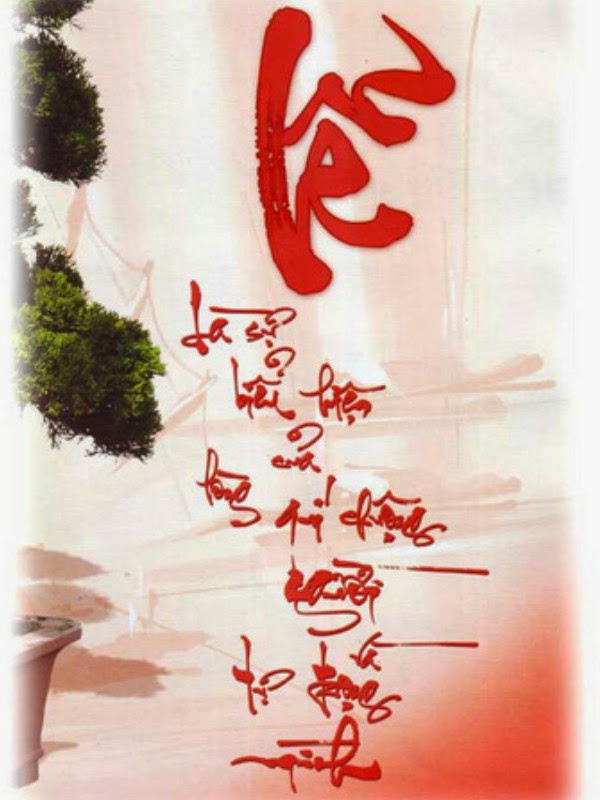 Lễ
là sự
biểu hiện
của
lòng quý chuộng
người
và
tự trọng
mình